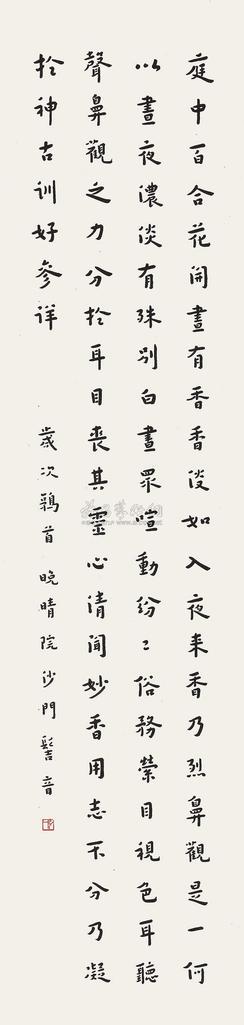 庭中百合花開晝有香香淡如入夜來香乃烈鼻觀是一何
以晝夜濃淡有殊別白晝眾喧動紛〻俗務縈目視色耳聽
聲鼻觀之力分於耳目喪其靈心清聞妙香用志不分乃凝
於神古訓好參詳
歲次鶉首晚晴院沙門髻音